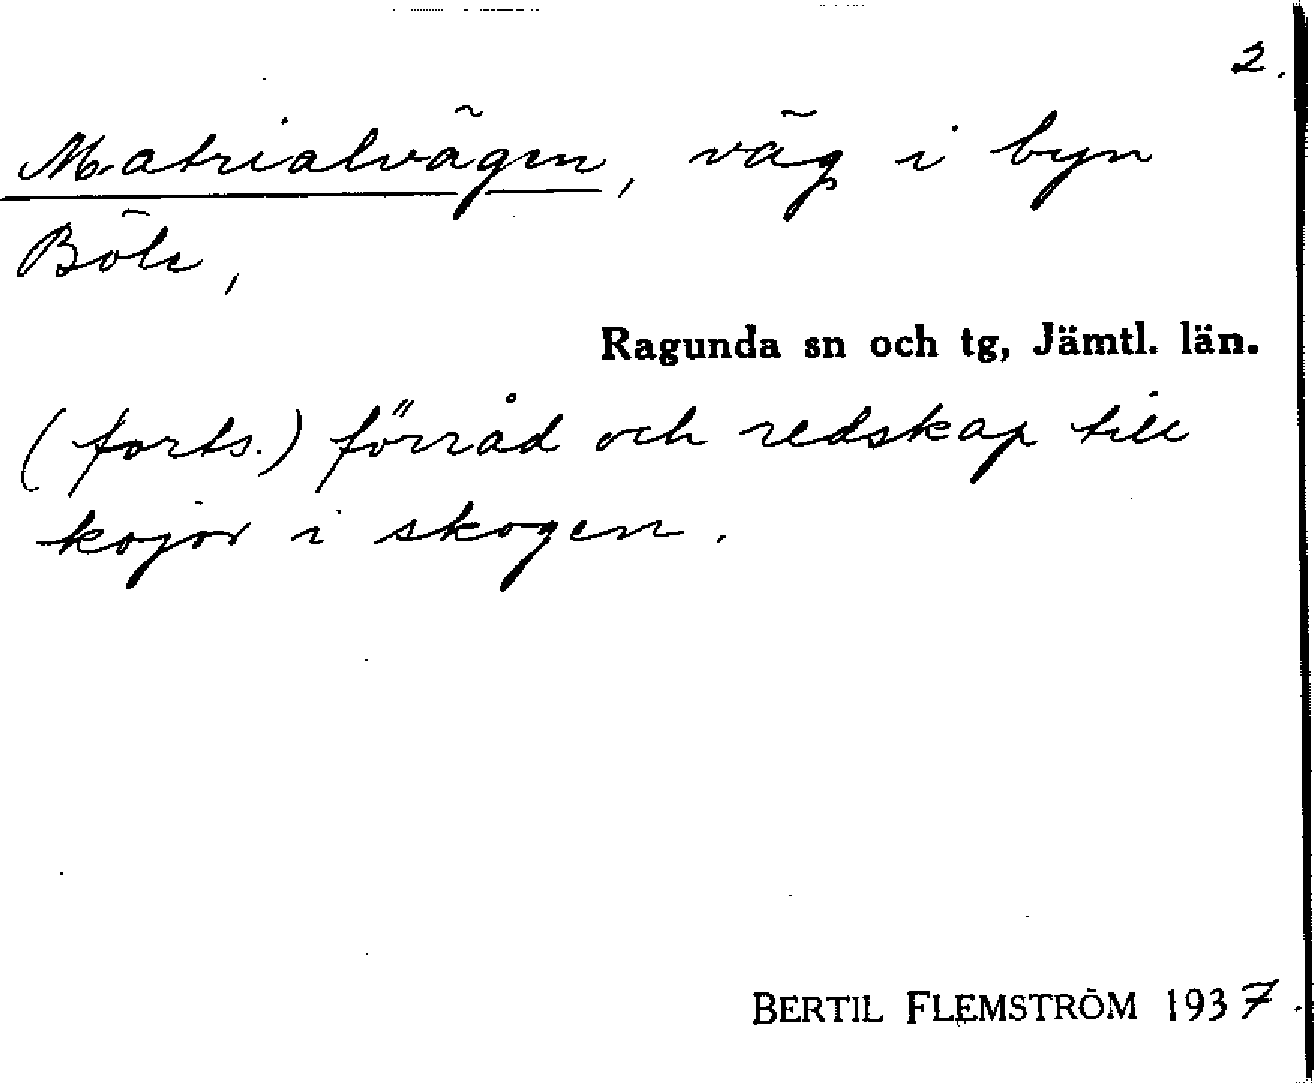 2.
Matrialvägen, väg i byn
Böle,
Ragunda sn och tg, Jämtl. län.
(forts.) förråd och redskap till
kojor i skogen.
BERTIL FLEMSTRÖM 1937.